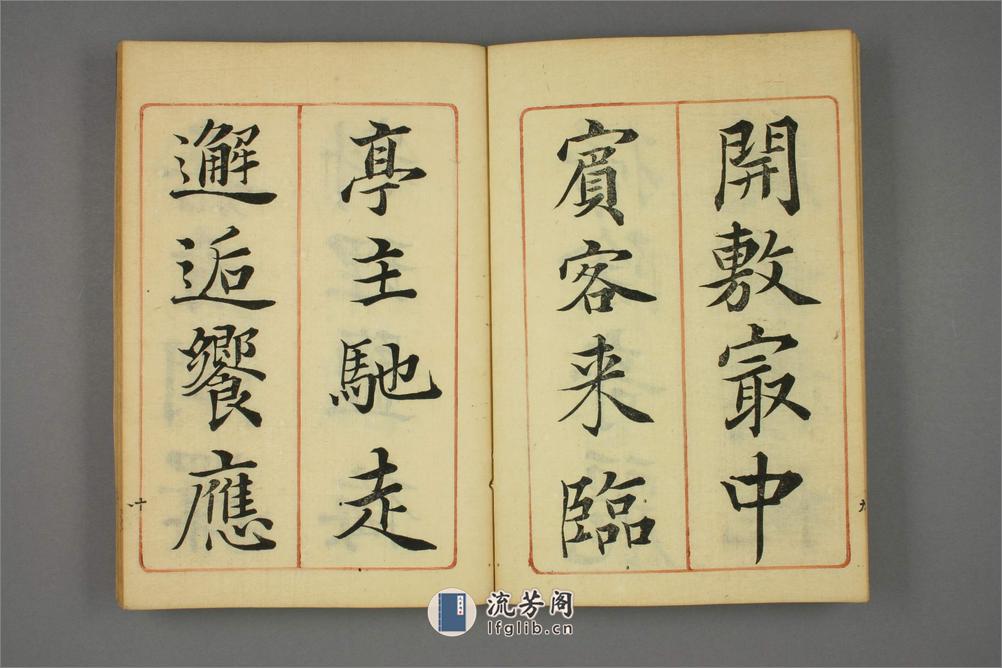 開敷冣中
賓客来臨
九
亭主馳走
邂逅饗應
十
流芳阁
lfglib.cn